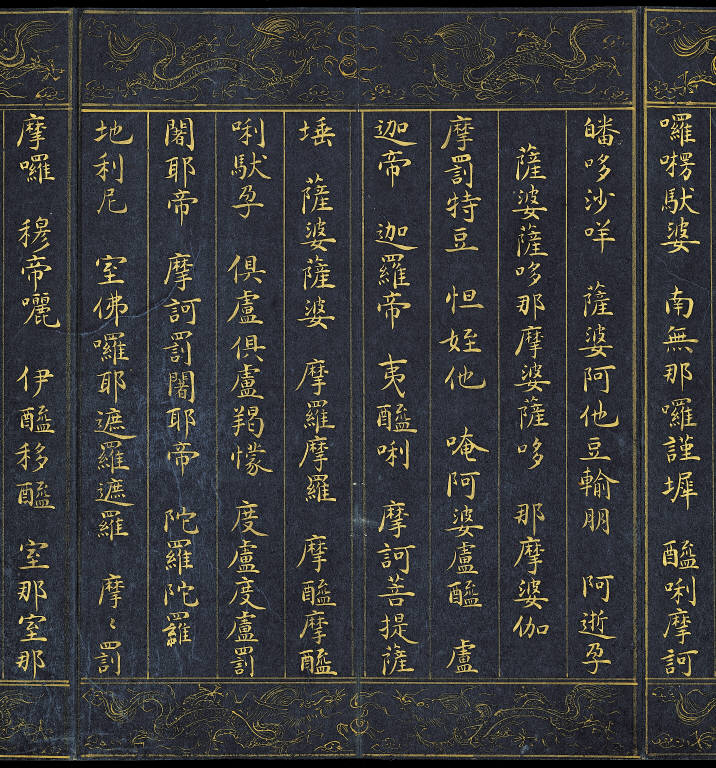 囉楞馱婆 南無那囉謹墀 醯唎摩訶
皤哆沙咩 薩婆阿他豆輸朋 阿逝孕
薩婆薩哆那摩婆薩哆 那摩婆伽
摩罰特豆 怛姪他 唵阿婆盧醯 盧
迦帝 迦羅帝 夷醯唎 摩訶菩提薩
埵 薩婆薩婆 摩羅摩羅 摩醯摩醯
唎馱孕 俱盧俱盧羯懞 度盧度盧罰
闍耶帝 摩訶罰闍耶帝 陀羅陀羅
地利尼 室佛囉耶遮羅遮羅 摩〻罰
摩囉 穆帝囇 伊醯移醯 室那室那